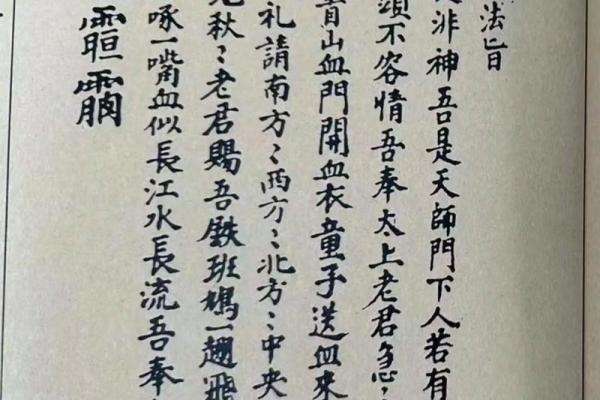 法旨
非神吾是天師門下人若有
須不容情吾奉太上老君急〻
山血門開血衣童子送血來
礼請南方〻西方〻北方〻中央
秋〻老君賜吾鉄班鳩一翅飛
啄一嘴血似長江水長流吾奉